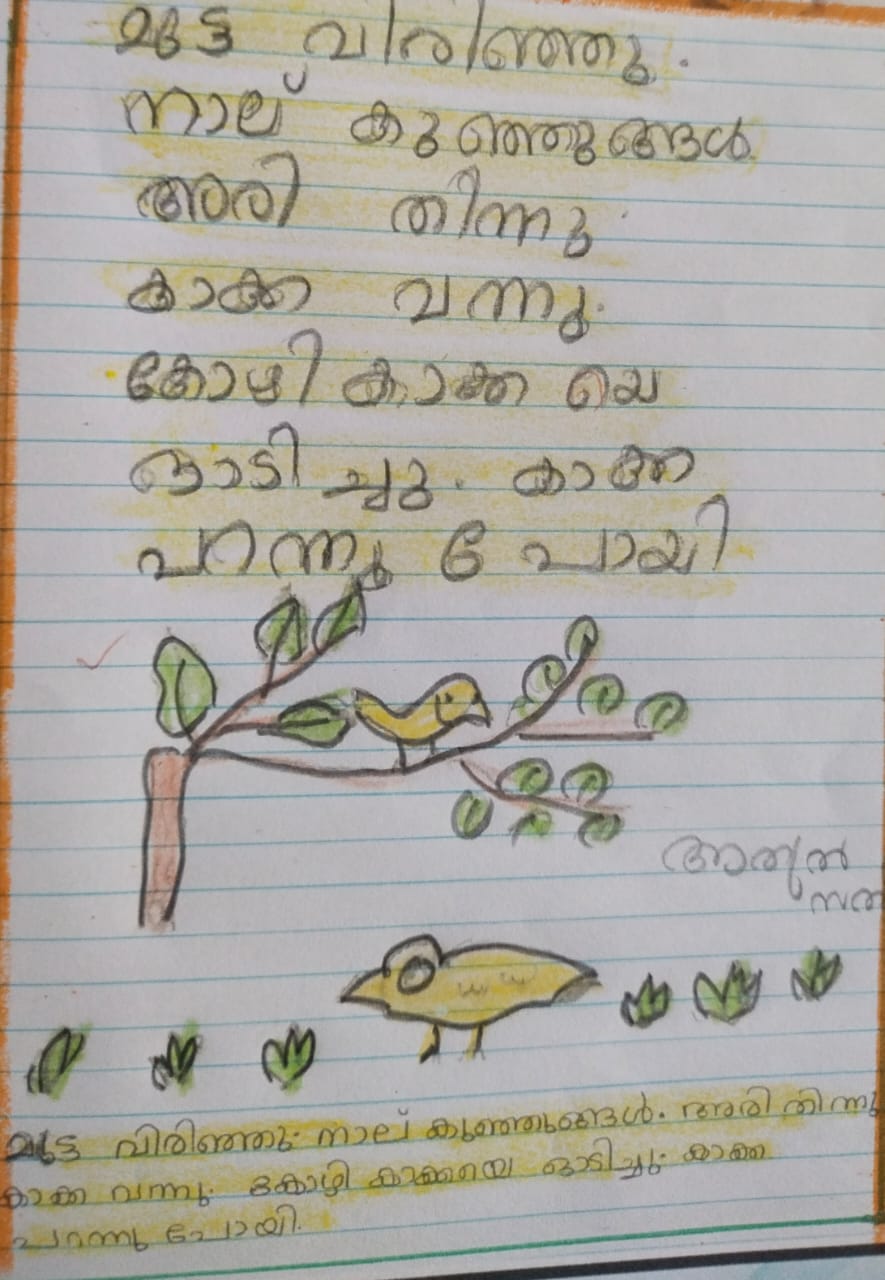 മുട്ട വിരിഞ്ഞു.
നാല് കുഞ്ഞുങ്ങൾ
അരി തിന്നു.
കാക്ക വന്നു.
കോഴി കാക്ക യെ
ഓടി ച്ചു. കാക്ക
പറന്നു പോയി
മുട്ട വിരിഞ്ഞു. നാല് കുഞ്ഞുങ്ങൾ. അരി തിന്നു
കാക്ക വന്നു. കോഴി കാക്കയെ ഓടിച്ചു. കാക്ക
പറന്നു പോയി.